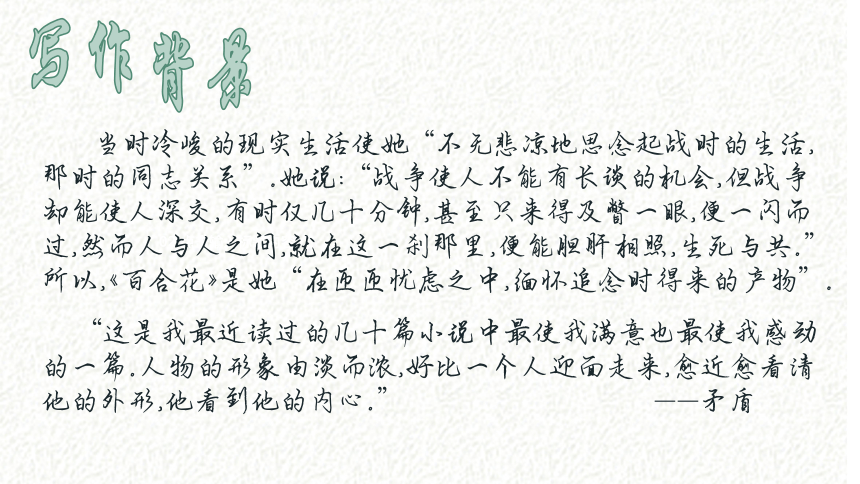 写作背景
当时冷峻的现实生活使她“不无悲凉地思念起战时的生活,
那时的同志关系”.她说:“战争使人不能有长谈的机会,但战争
却能使人深交,有时仅几十分钟,甚至只来得及瞥一眼,便一闪而
过,然而人与人之间,就在这一刹那里,便能胆肝相照,生死与共.”
所以,《百合花》是她“在匝匝忧虑之中,缅怀追念时得来的产物”.
“这是我最近读过的几十篇小说中最使我满意也最使我感动
的一篇.人物的形象由淡而浓,好比一个人迎面走来,愈近愈看请
他的外形,他看到他的内心.” ——矛盾